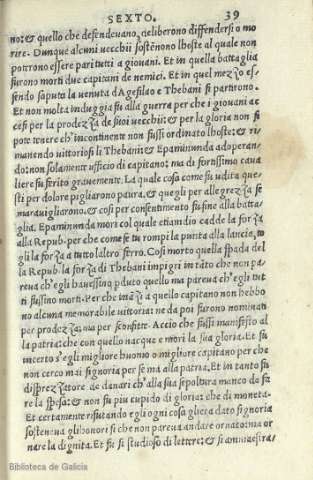 SEXTO. 39
no: & quello che defendeuano, deliberono diffendersi o mo
rire. Dunque alcuni uecchii sostēnono lhoste al quale non
potrono essere pari tutti a giouani. Et in quella battaglia
furono morti due capitani de nemici. Et in quel mezzo es,
sendo saputa la uenuta d'Agesilao e Thebani si partirono.
Et non molta indugia fu alla guerra per che i giouani ac
cesi per la prodezza de suoi uecchii: & per la gloria non si
pote tenere ch'incontinente non fussi ordinato lhoste: & ri,
manendo uittoriosi li Thebani: & Epaminunda adoperan,
do: non solamente ufficio di capitano: ma di fortissimo caua
liere fu ferito grauemente. La qual cosa come fu udita que,
sti per dolore pigliarono paura. & quegli per allegrezza se
marauigliarono, & cosi per consentimento fu fine alla batta,
glia. Epaminunda mori col quale etiamdio cadde la forza
alla Repub. per che come se tu rompi la punta alla lancia, to
gli la forza a tutto l'altro ferro. Cosi morto quella spada del
la Repub. la forza di Thebani impigri in tāto che non pa,
reua ch'egli hauessino pduto quello ma pareua ch'egli tut
ti fussino morti. Per che ināzi a quello capitano non hebbo
no alcuna memorabile uittoria: ne da poi furono nominati
per prodezza, ma per sconfitte. Accio che fussi manifesto al
la patria: che con quello nacque e mori la sua gloria. Et fu
incerto s'egli migliore huomo o migliore capitano per che
non cerco mai signoria per se ma alla patria. Et in tanto fu
disprezzatore de danari ch'alla sua sepoltura manco da fa,
re la spesa: & non fu piu cupido di gloria: che di moneta.
Et certamente rifutando egli ogni cosa gliera dato signoria
sosteneua gli honori si che non pareua andare ornato: ma or
nare la dignita. Et fu si studioso di lettere: & si ammaestra,
Biblioteca de Galicia